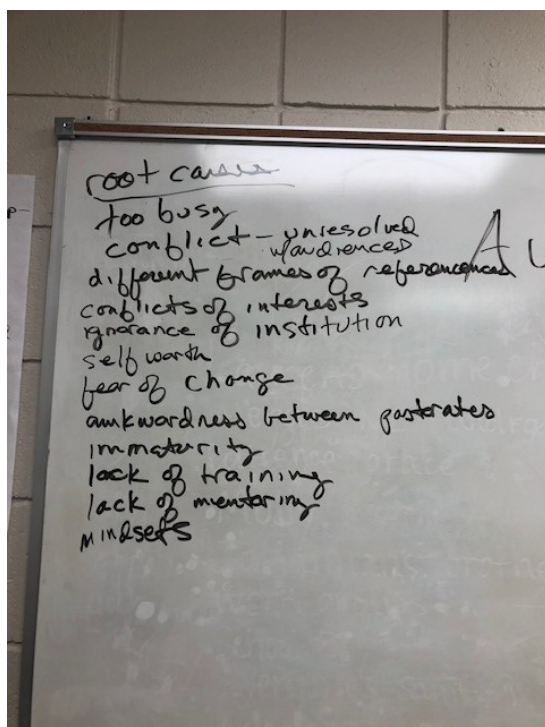 root causes
too busy
conflict - unresolved
w/audiences
different frames of references
conflicts of interests
ignorance of institution
self worth
fear of change
awkwardness between pastorates
immaturity
lack of training
lack of mentoring
mindsets